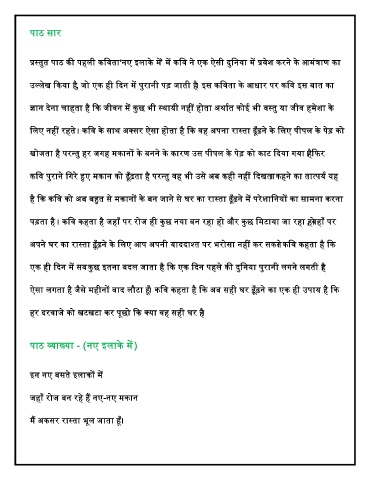 पाठ सार
प्रस्तुत पाठ की पहली कविता'नए इलाके में' में कवि ने एक ऐसी दुनिया में प्रवेश करने के आमंत्रण का
उल्लेख किया है, जो एक ही दिन में पुरानी पड़ जाती है। इस कविता के आधार पर कवि इस बात का
ज्ञान देना चाहता है कि जीवन में कुछ भी स्थायी नहीं होता अर्थात कोई भी वस्तु या जीव हमेशा के
लिए नहीं रहते। कवि के साथ अक्सर ऐसा होता है कि वह अपना रास्ता ढूँढ़ने के लिए पीपल के पेड़ को
खोजता है परन्तु हर जगह मकानों के बनने के कारण उस पीपल के पेड़ को काट दिया गया है।फिर
कवि पुराने गिरे हुए मकान को ढूँढ़ता है परन्तु वह भी उसे अब कही नहीं दिखता।कहने का तात्पर्य यह
है कि कवि को अब बहुत से मकानों के बन जाने से घर का रास्ता ढूँढ़ने में परेशानियों का सामना करना
पड़ता है। कवि कहता है जहाँ पर रोज ही कुछ नया बन रहा हो और कुछ मिटाया जा रहा हो,वहाँ पर
अपने घर का रास्ता ढूँढ़ने के लिए आप अपनी याददाश्त पर भरोसा नहीं कर सकते।कवि कहता है कि
एक ही दिन में सबकुछ इतना बदल जाता है कि एक दिन पहले की दुनिया पुरानी लगने लगती है।
ऐसा लगता है जैसे महीनों बाद लौटा हूँ। कवि कहता है कि अब सही घर ढूँढ़ने का एक ही उपाय है कि
हर दरवाजे को खटखटा कर पूछो कि क्या वह सही घर है।
पाठ व्याख्या - (नए इलाके में)
इन नए बसते इलाकों में
जहाँ रोज बन रहे हैं नए-नए मकान
मैं अकसर रास्ता भूल जाता हूँ।